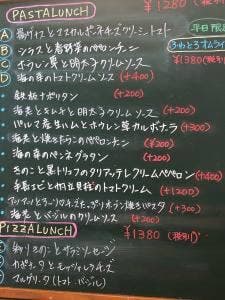 PASTA LUNCH ¥1280
平日限
Ⓐ 揚げナスとマスカルポーネチーズクリームトマト
Ⓑ シラスと春野菜のペペロンチーノ
ふわとろオムライ
Ⓒ ホウレン草と明太子クリームソース
¥1380(税
Ⓓ 海の幸のトマトクリームソース (+400)
鉄板ナポリタン (+200)
海老とキムチと明太子クリームソース (+200)
パルマ産生ハムとホウレン草カルボナーラ (+300)
のペペロンチーノ (+200)
海の幸のペンネグラタン (+200)
きのこと黒トリュフのタリアッテレクリームペペロン (+400)
手長エビと帆立貝柱のトマトクリーム (+1200)
(+300)
海老とバジルのクリームソース (+200)
PIZZA LUNCH ¥1380 (税別)
きのことサラミソーセージ
カポナータとモッツァレラチーズ
マルゲリータ(トマト・バジル)